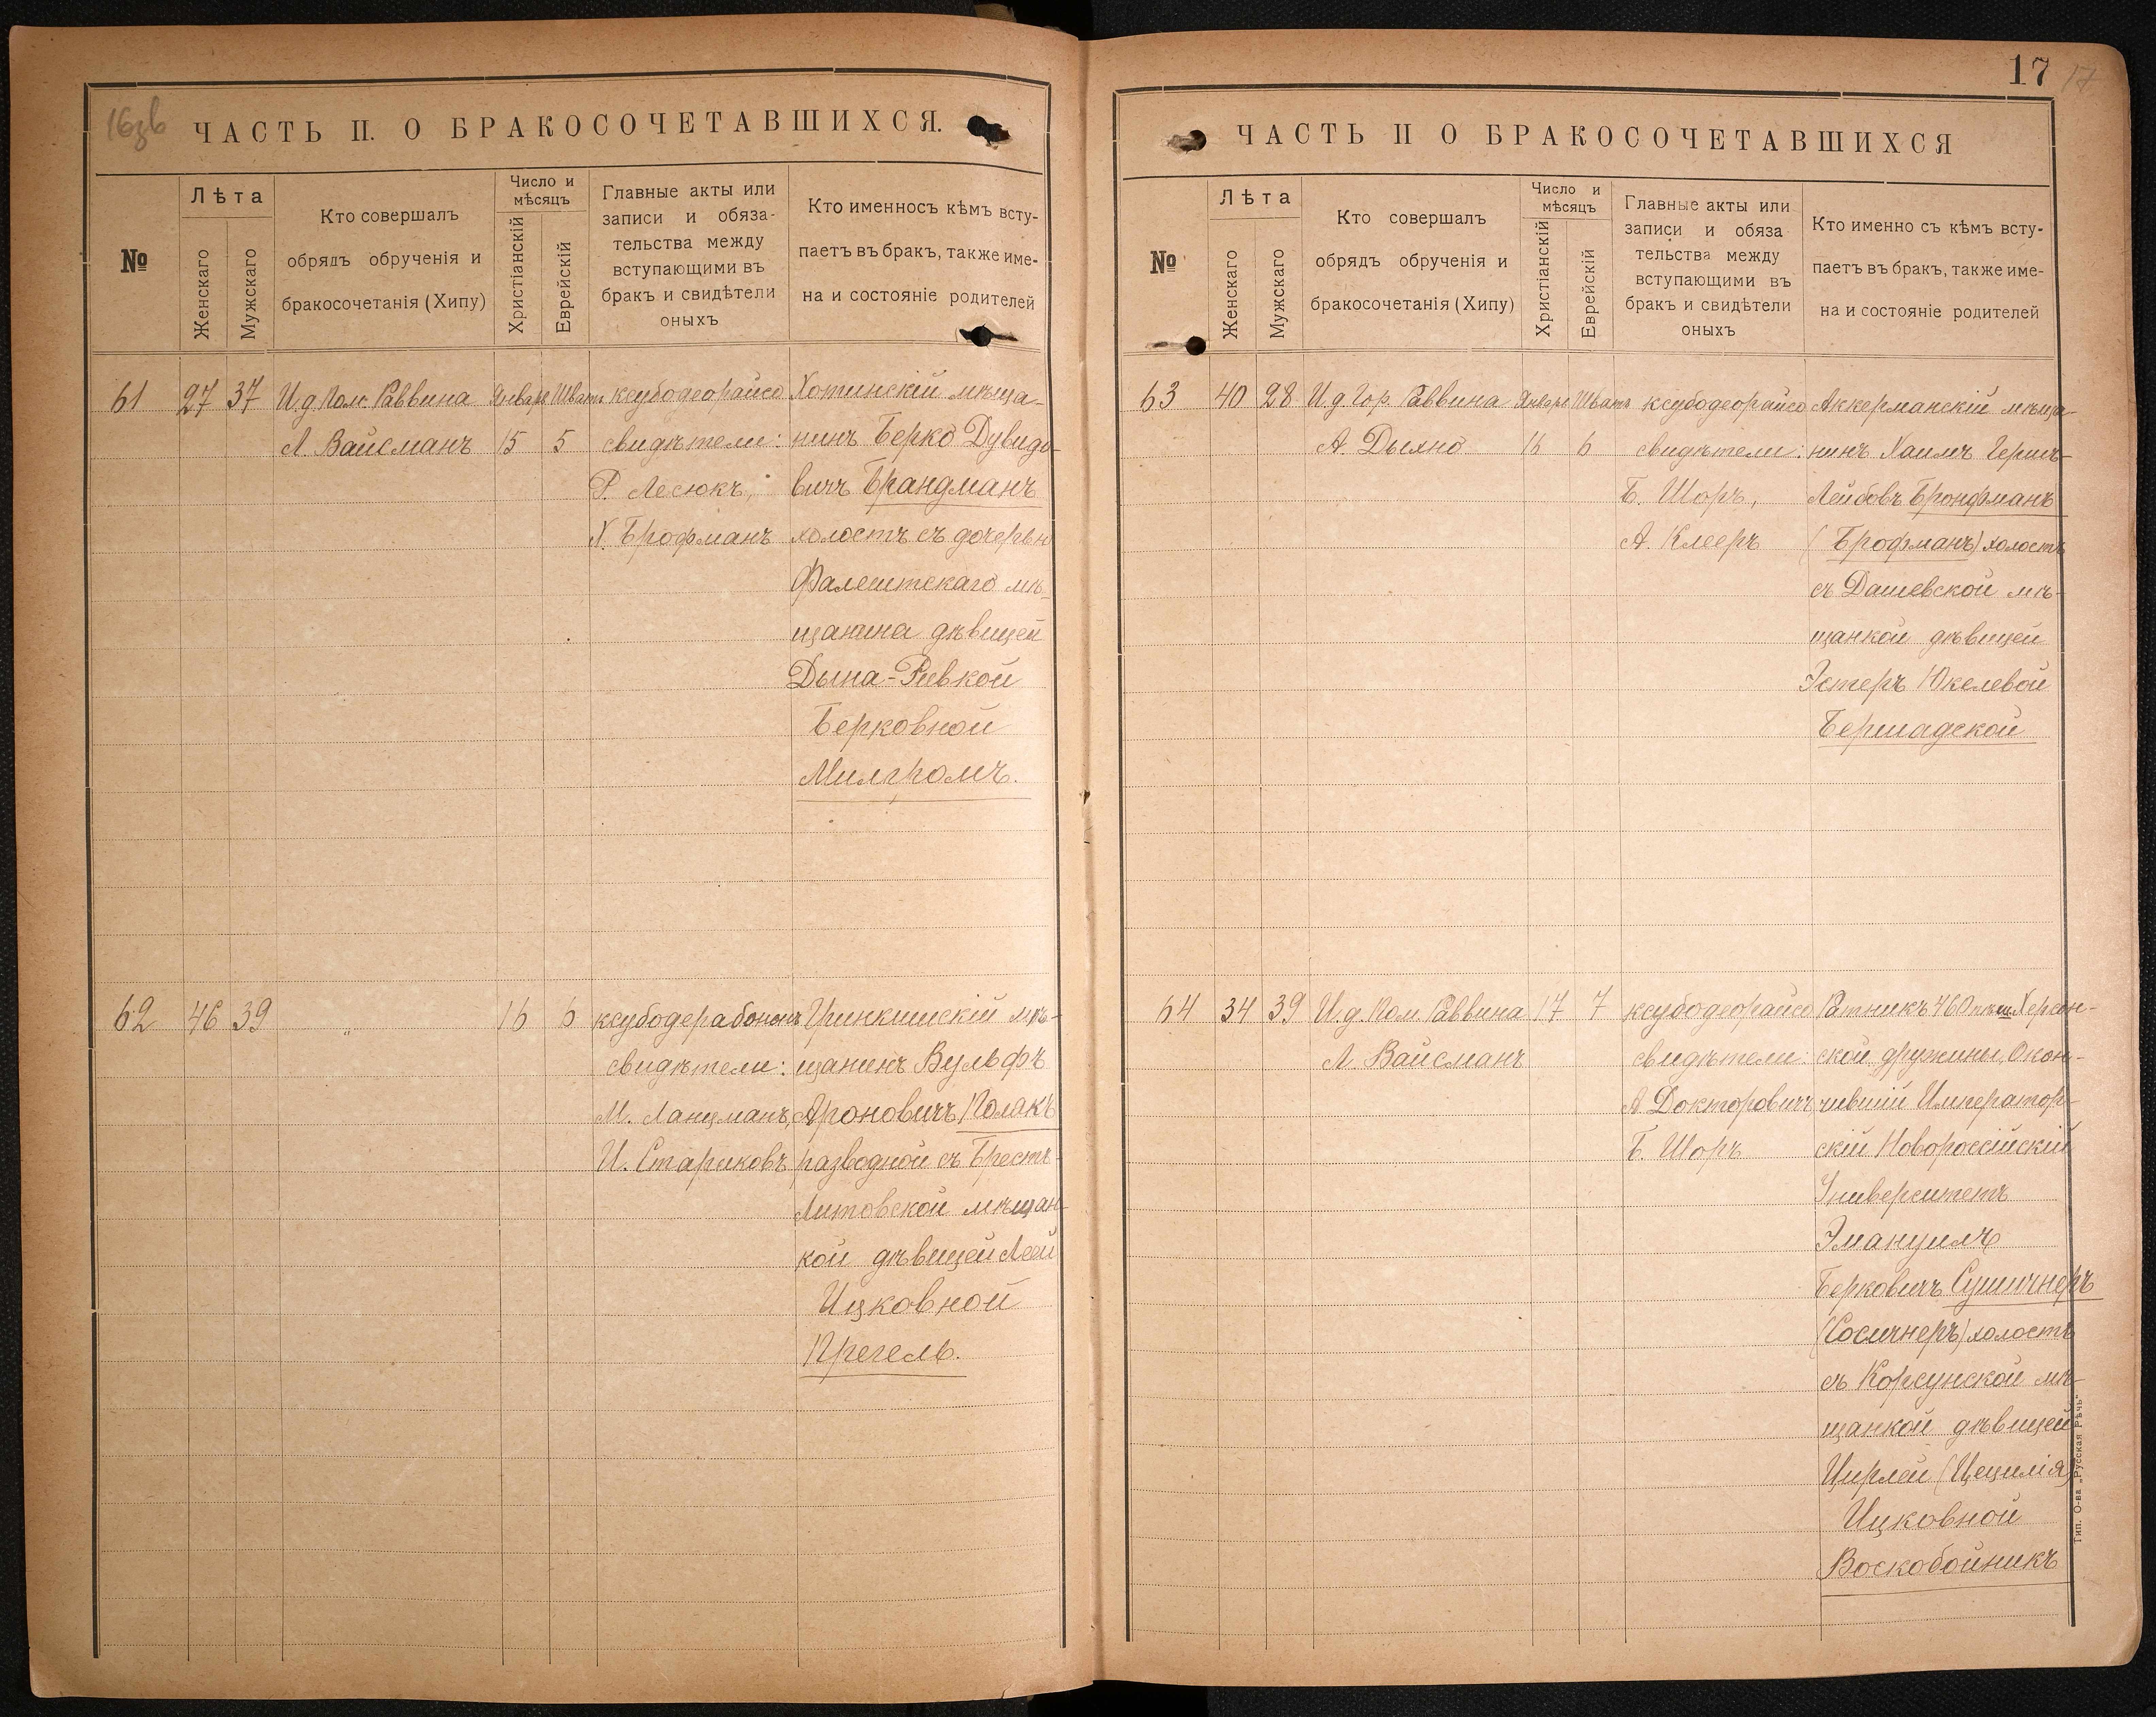 16зв
ЧАСТЬ II. О БРАКОСОЧЕТАВШИХСЯ.
№
Лѣта
Женскаго
Мужскаго
Кто совершалъ
обрядъ обрученія и
бракосочетанія (Хипу)
Число и
мѣсяцъ
Христіанскій
Еврейскій
Главные акты или
записи и обяза-
тельства между
вступающими въ
бракъ и свидѣтели
оныхъ
Кто именносъ кѣмъ всту-
паетъ въ бракъ, также име-
на и состояніе родителей
61
27
37
И. д. Пом. Раввина
Л. Вайсманъ
Январь
15
Шватъ
5
ксубодеорайсо
свидѣтели:
Р. Лесюкъ,
Х. Брофманъ
Хотинскій мѣща-
нинъ Берко Дувидо-
вичъ Брандманъ
холостъ съ дочерью
Фалештскаго мѣ-
щанина дѣвицей
Дына-Ривкой
Берковной
Милгромъ.
62
46
39
"
16
6
ксубодерабононъ
свидѣтели:
М. Ланцманъ,
И. Стариковъ
Гринкишскій мѣ-
щанинъ Вульфъ
Ароновичъ Полакъ
разводной съ Брестъ-
Литовской мѣщан-
кой дѣвицей Леей
Ицковной
Прегель.
17
17
ЧАСТЬ II О БРАКОСОЧЕТАВШИХСЯ
№
Лѣта
Женскаго
Мужскаго
Кто совершалъ
обрядъ обрученія и
бракосочетанія (Хипу)
Число и
мѣсяцъ
Христіанскій
Еврейскій
Главные акты или
записи и обяза
тельства между
вступающими въ
бракъ и свидѣтели
оныхъ
Кто именно съ кѣмъ всту-
паетъ въ бракъ, также име-
на и состояніе родителей
63
40
28
И. д. Гор. Раввина
А. Дыхно
Январь
16
Шватъ
6
ксубодеорайсо
свидѣтели:
Б. Шоръ,
А. Клееръ
Аккерманскій мѣща-
нинъ Хаимъ Гершъ-
Лейбовъ Бронфманъ
(Брофманъ) холостъ
съ Дашевской мѣ-
щанкой дѣвицей
Эстеръ Юкелевой
Бершадской
64
34
39
И. д. Пом. Раввина
Л. Вайсманъ
17
7
ксубодеорайсо
свидѣтели:
А. Докторовичъ
Б. Шоръ
Ратникъ 460 пѣш. Херсон-
ской дружины, Окон-
чившій Император-
скій Новороссійскій
Университетъ
Эмануилъ
Берковичъ Сушичнеръ
(Сосичнеръ) холостъ
съ Корсунской мѣ-
щанкой дѣвицей
Цирлей (Цецилія)
Ицковной
Воскобойникъ
Тип. О-ва „Русская Рѣчь“